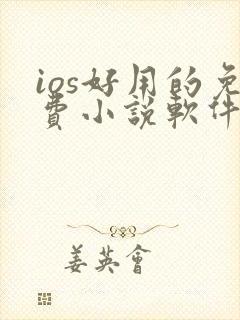 ios好用的免
費小說軟件
姜英會